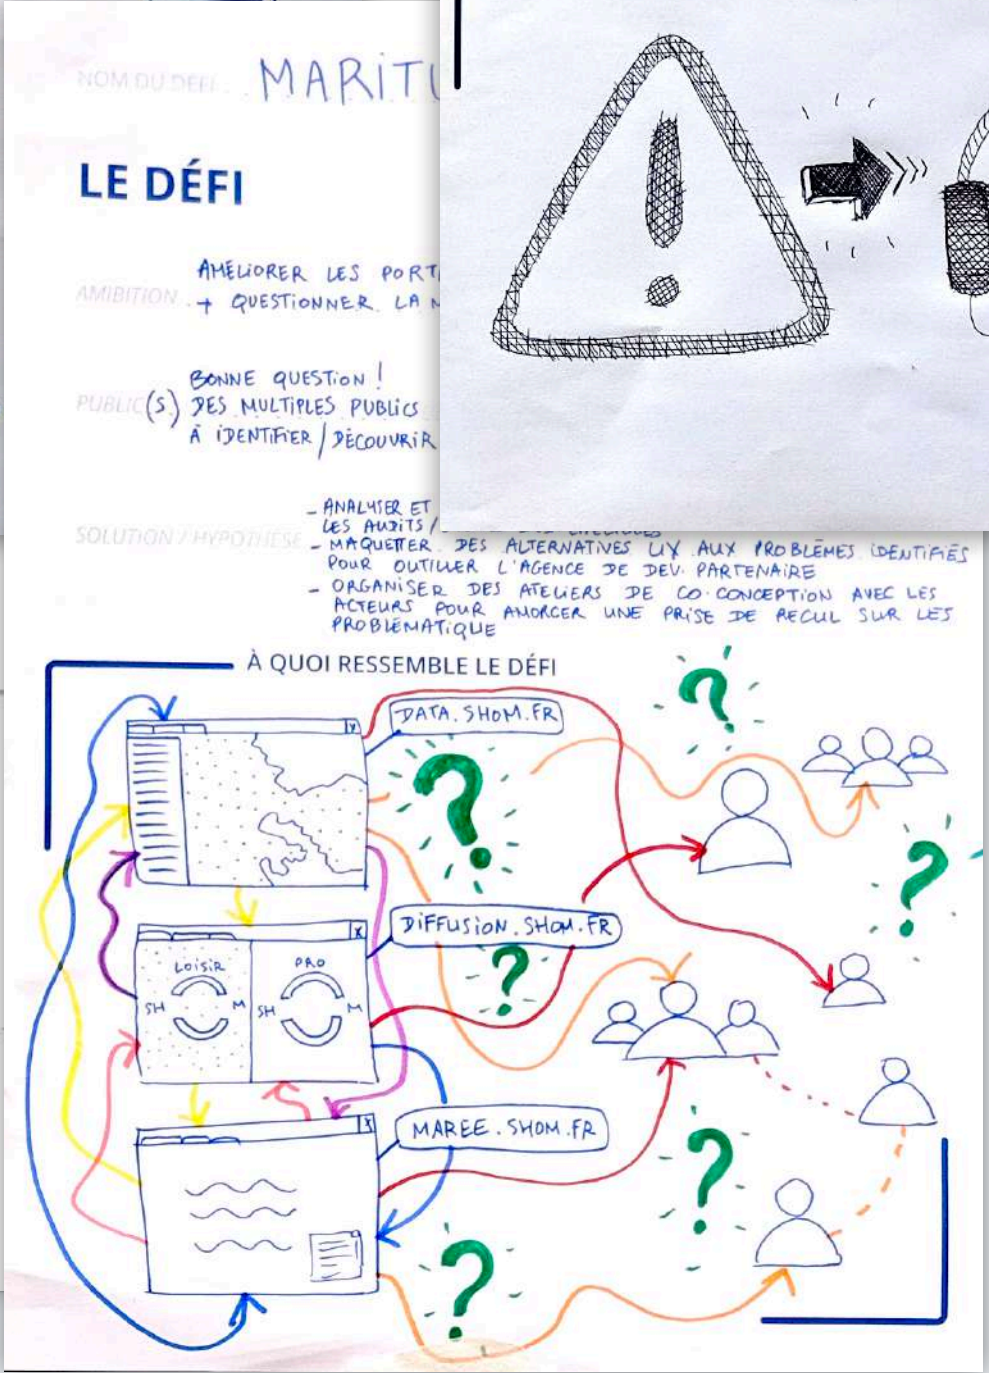 NOM DU DEFI MARITU
LE DÉFI
AMÉLIORER LES PORT
AMIBITION → QUESTIONNER LA
BONNE QUESTION !
PUBLIC(S) DES MULTIPLES PUBLICS
À IDENTIFIER / DÉCOUVRIR
- ANALYSER ET
SOLUTION / HYPOTHÈSE LES AUDITS /
- MAQUETTER DES ALTERNATIVES UX AUX PROBLÈMES IDENTIFIÉS
POUR OUTILLER L'AGENCE DE DEV. PARTENAIRE
- ORGANISER DES ATELIERS DE CO-CONCEPTION AVEC LES
ACTEURS POUR AMORCER UNE PRISE DE RECUL SUR LES
PROBLÉMATIQUE
À QUOI RESSEMBLE LE DÉFI
DATA.SHOM.FR
DIFFUSION.SHOM.FR
LOISIR PRO
SH M SH M
MAREE.SHOM.FR